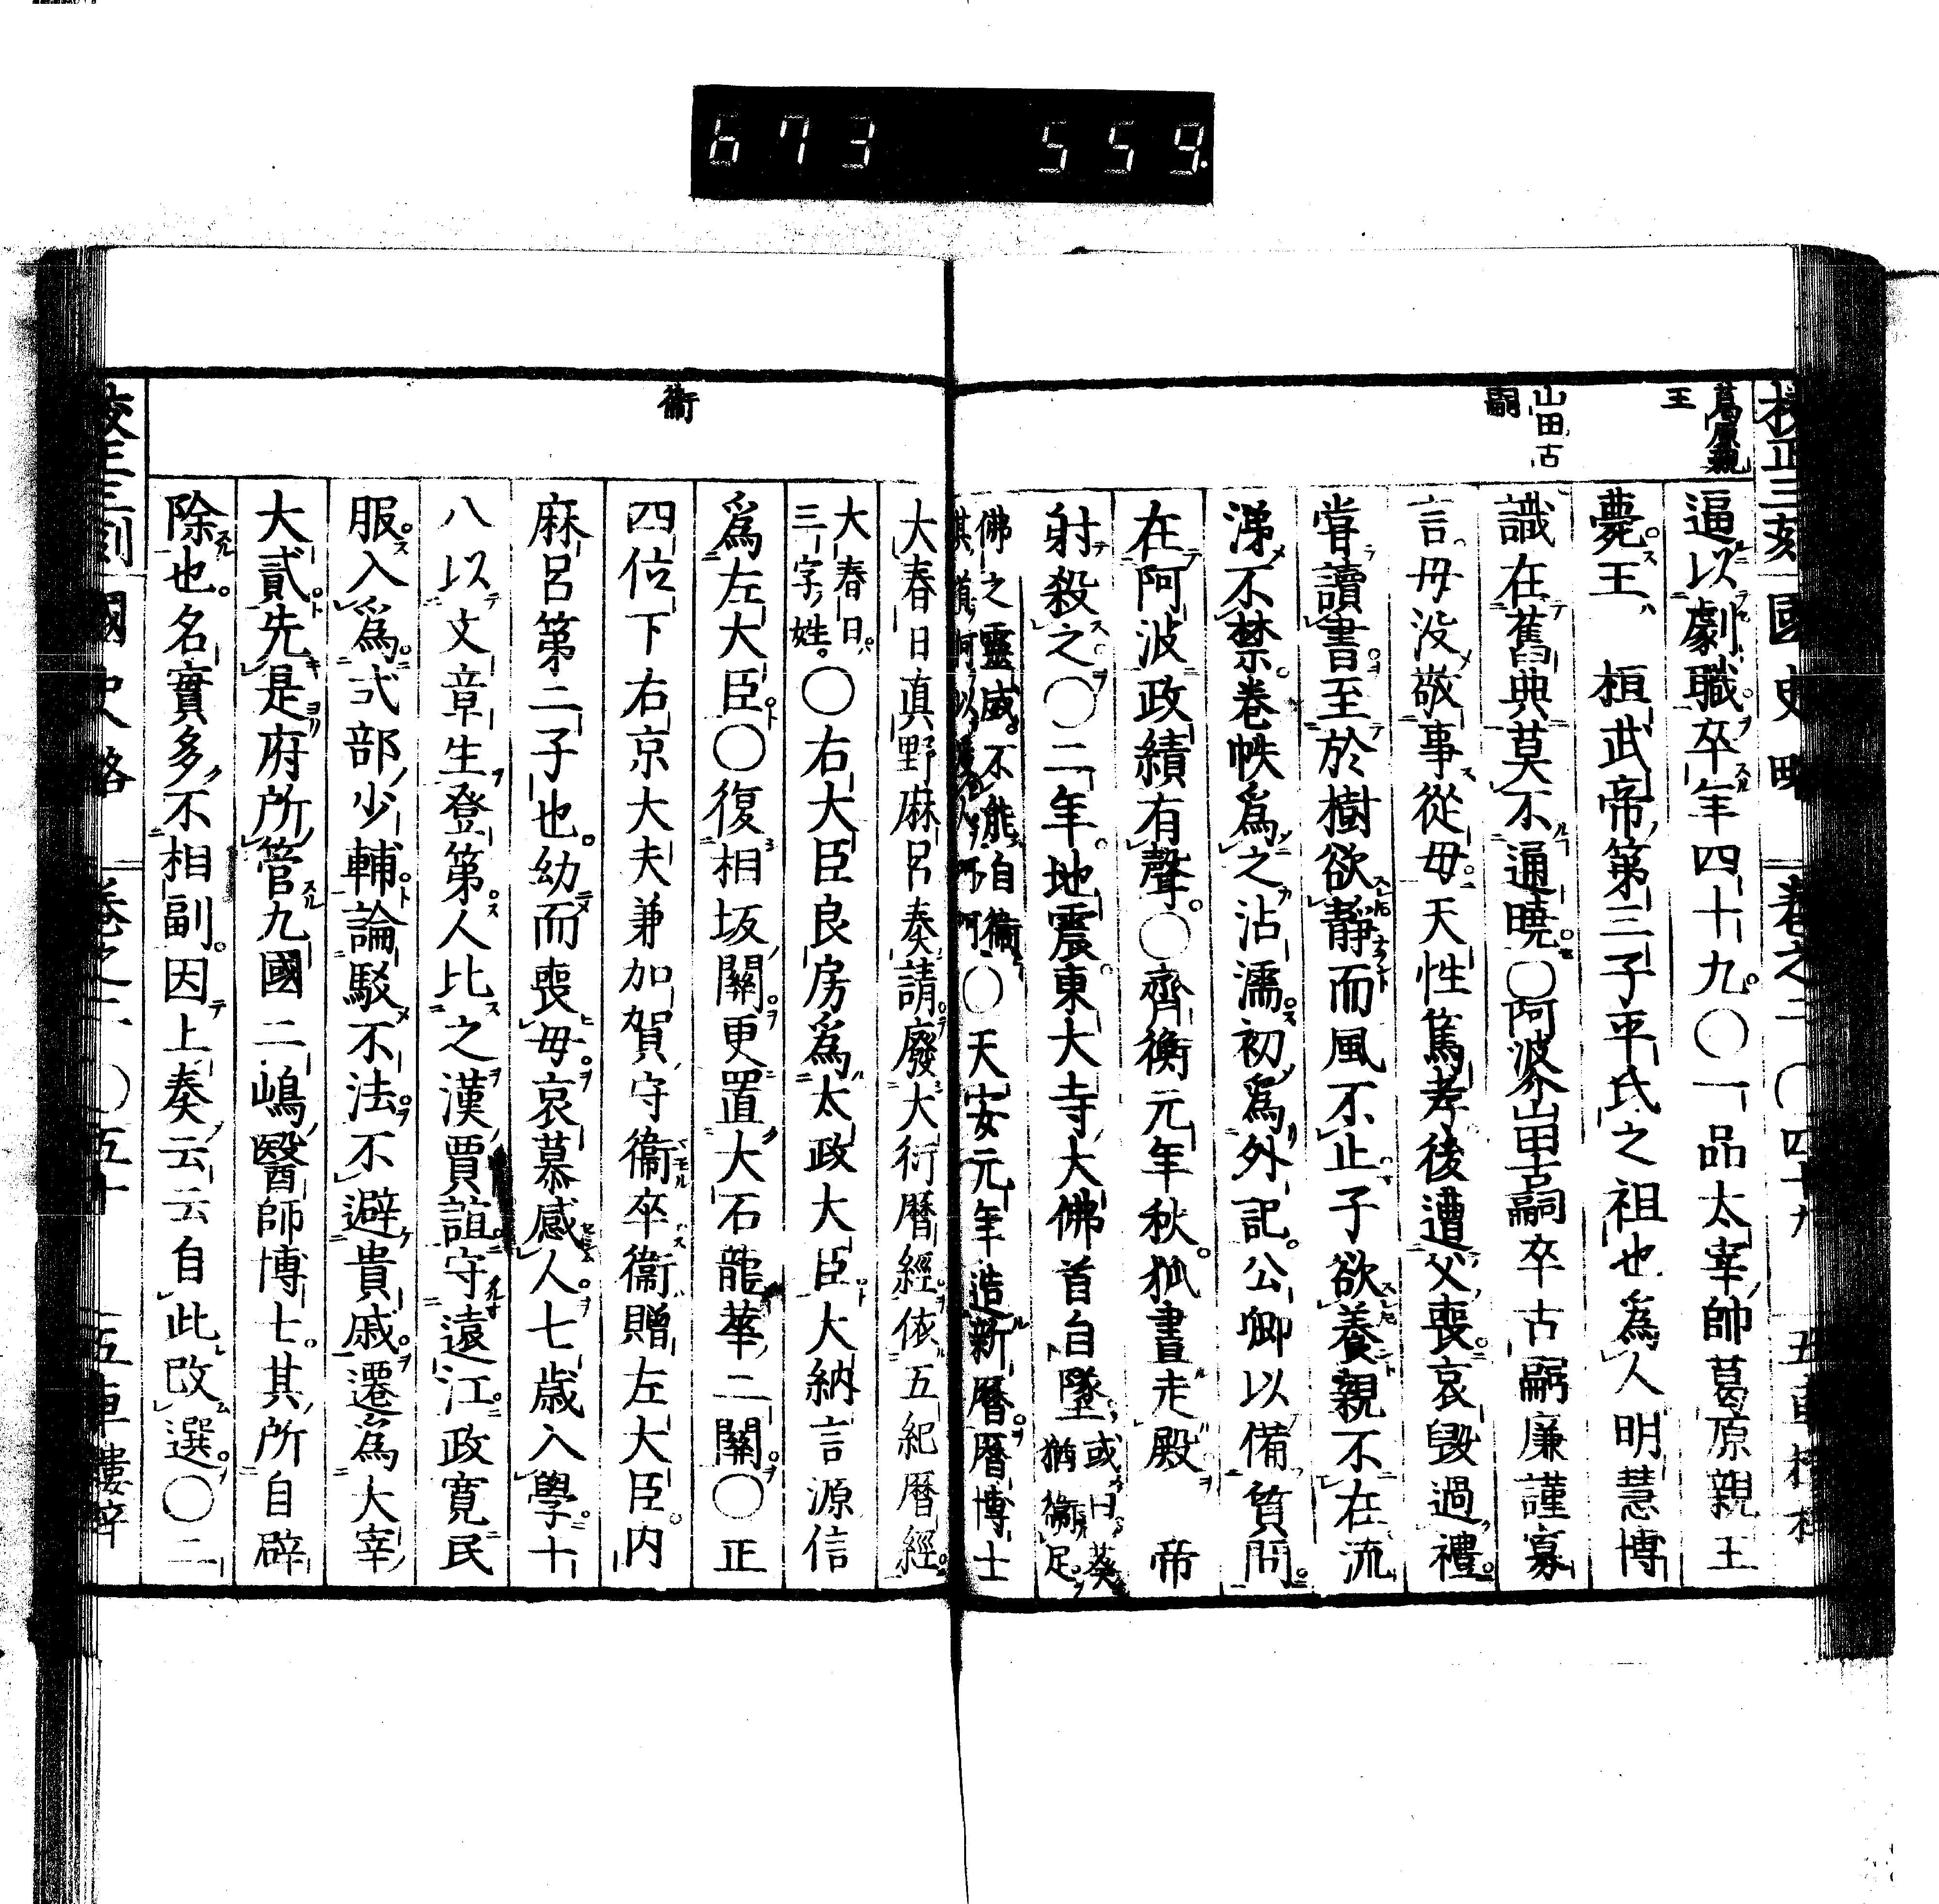 673 559
校正三刻 國史略 卷之二 〇四十九 五車樓梓
葛原親
王
山田古
嗣
逼以劇職卒年四十九〇一品太宰帥葛原親王
薨王 桓武帝第三子平氏之祖也爲人明慧博
識在舊典莫不通曉〇阿波介山田古嗣卒古嗣廉謹寡
言母没敬事從母天性篤孝後遭父喪哀毀過禮
嘗讀書至於樹欲靜而風不止子欲養親不在流
涕不禁卷帙爲之沾濡初爲外記公卿以備質問
在阿波政績有聲〇齊衡元年秋狐晝走殿 帝
射殺之〇二年地震東大寺大佛首自墜或曰葵猶衞足
佛之靈威不能自衞其首何以 人 〇天安元年造新曆曆博士
大春日真野麻呂奏請廢大衍曆經依五紀曆經
大春日三字姓〇右大臣良房爲太政大臣大納言源信
爲左大臣〇復相坂關更置大石龍華二關〇正
四位下右京大夫兼加賀守衞卒衞贈左大臣内
麻呂第二子也幼而喪母哀慕感人七歳入學十
八以文章生登第人比之漢賈誼守遠江政寛民
服入爲式部少輔論駁不法不避貴戚遷爲大宰
大貳先是府所管九國二嶋醫師博士其所自辟
除也名實多不相副因上奏云云自此改選〇二
衞
校正三刻 國史略 卷之二 〇五十 五車樓梓